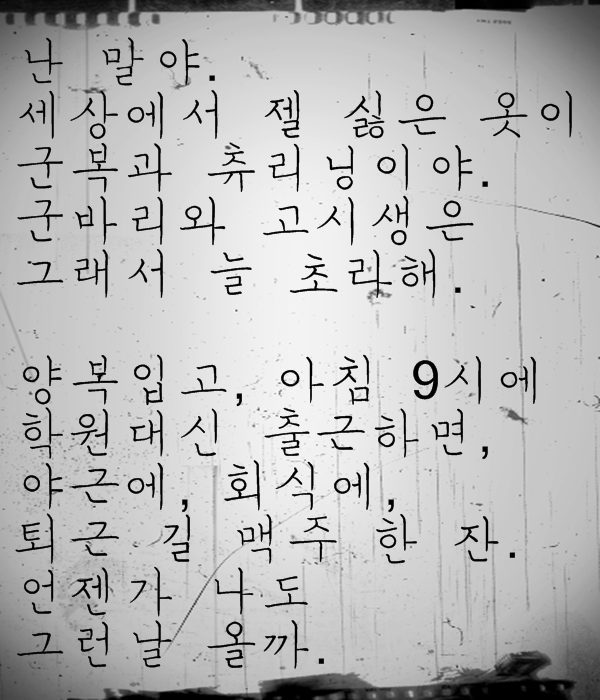 난 말야.
세상에서 젤 싫은 옷이
군복과 츄리닝이야.
군바리와 고시생은
그래서 늘 초라해.
양복입고, 아침 9시에
학원대신 출근하면,
야근에, 회식에,
퇴근 길 맥주 한 잔.
언젠가 나도
그런날 올까.